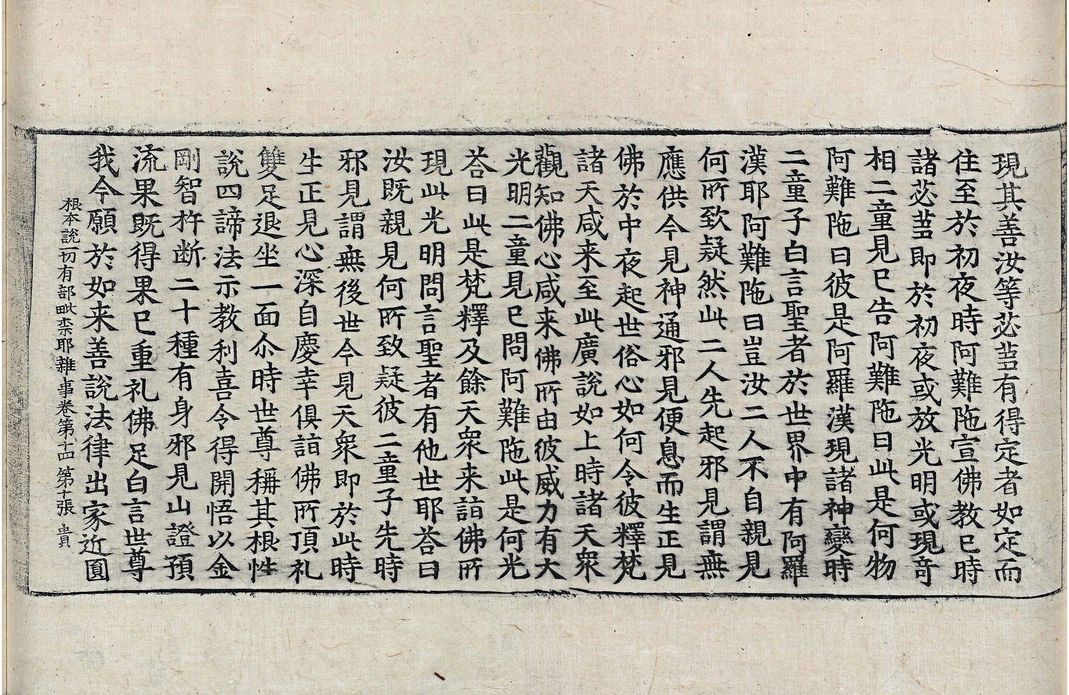 現其善汝等苾蒭有得定者如定而
住至於初夜時阿難陁宣佛教已時
諸苾蒭即於初夜或放光明或現竒
相二童見已告阿難陁曰此是何物
阿難陁曰彼是阿羅漢現諸神變時
二童子白言聖者於世界中有阿羅
漢耶阿難陁曰豈汝二人不自親見
何所致疑然此二人先起邪見謂無
應供今見神通邪見便息而生正見
佛於中夜起世俗心如何令彼釋梵
諸天咸来至此廣說如上時諸天衆
觀知佛心咸来佛所由彼威力有大
光明二童見已問阿難陁此是何光
荅曰此是梵釋及餘天衆来詣佛所
現此光明問言聖者有他世耶荅曰
汝既親見何所致疑彼二童子先時
邪見謂無後世今見天衆即於此時
生正見心深自慶幸俱詣佛所頂礼
雙足退坐一面尒時世尊稱其根性
說四諦法示教利喜令得開悟以金
剛智杵斷二十種有身邪見山證預
流果既得果已重礼佛足白言世尊
我今願於如来善說法律出家近圓
根本說一切有部毗柰耶雜事卷第十四 第十張 貴